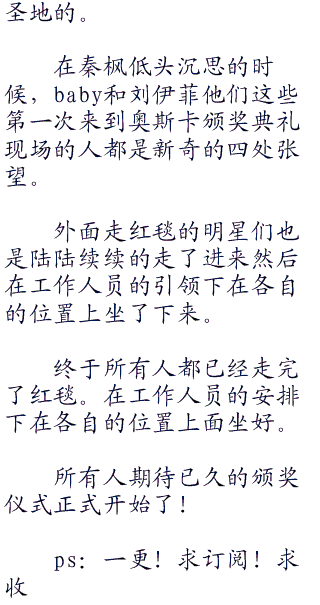 圣地的。
在秦枫低头沉思的时
候，baby和刘伊菲他们这些
第一次来到奥斯卡颁奖典礼
现场的人都是新奇的四处张
望。
外面走红毯的明星们也
是陆陆续续的走了进来然后
在工作人员的引领下在各自
的位置上坐了下来。
终于所有人都已经走完
了红毯。在工作人员的安排
下在各自的位置上面坐好。
所有人期待已久的颁奖
仪式正式开始了！
ps：一更！求订阅！求
收